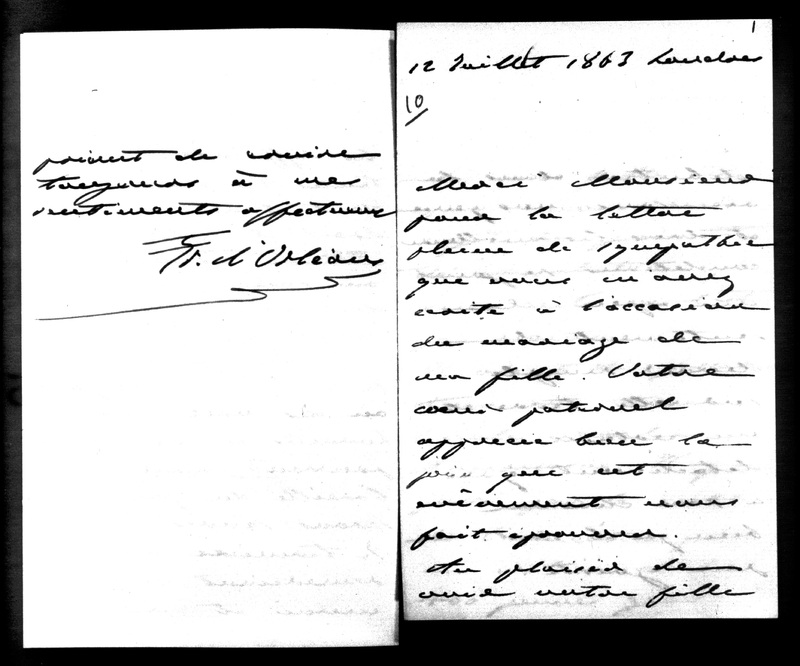 1
12 Juillet 1863 Londres
10
Merci Monsieur
pour la lettre
pleine de sympathie
que vous m'avez
écrite à l'occasion
du mariage de
ma fille. Votre
coeur paternel
apprécie bien la
joie que cet
évènement nous
fait éprouver.
Au plaisir de
votre fille
de croire
toujours à mes
sentiments affectueux
Fr. d'Orléans